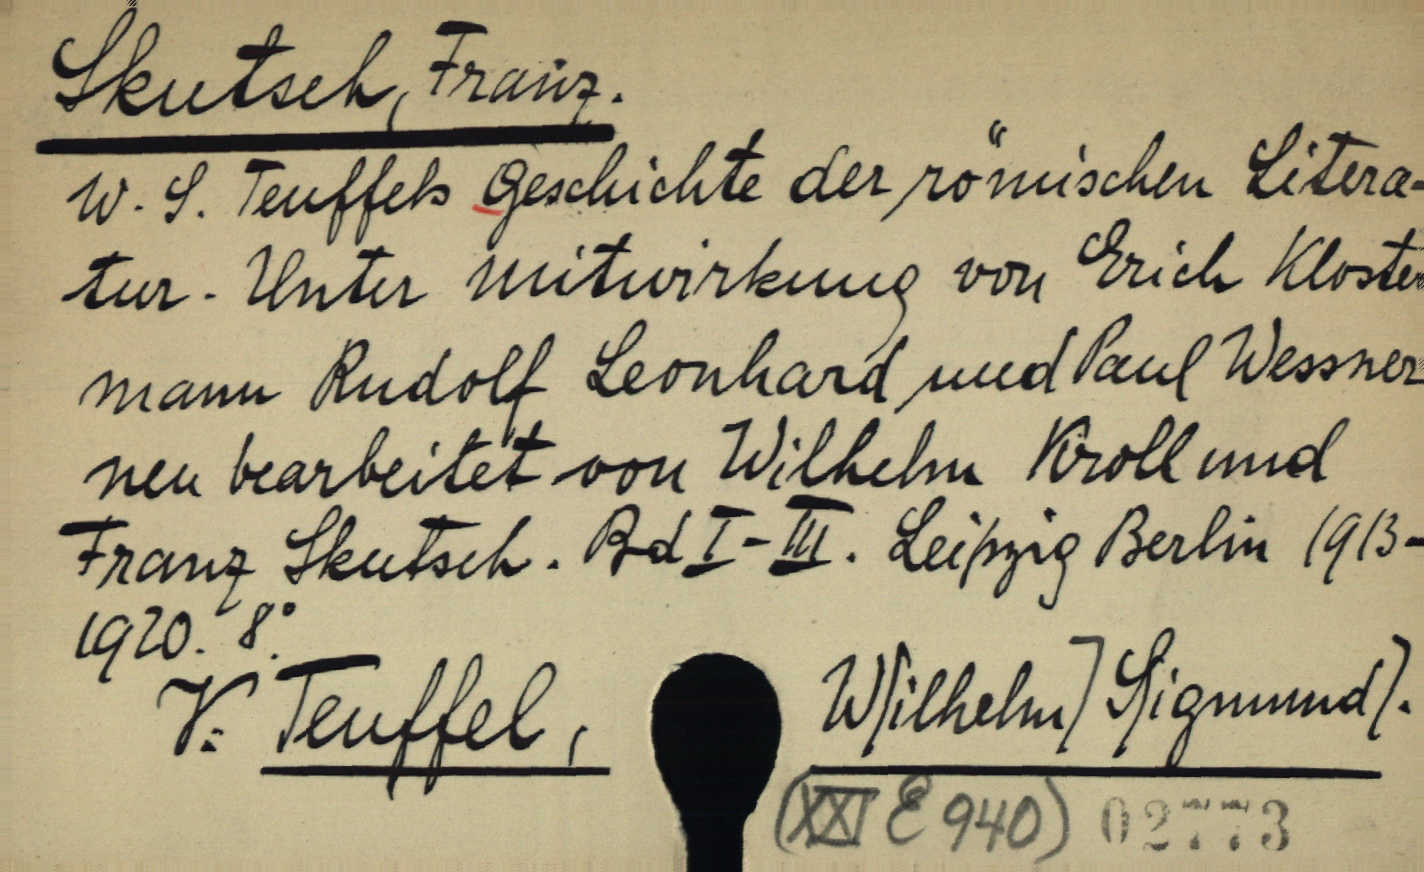 Skutsch, Franz.
W. S. Teuffels Geschichte der römischen Litera-
tur. Unter Mitwirkung von Erich Kloster
mann Rudolf Leonhard und Paul Wessner
neu bearbeitet von Wilhelm Kroll und
Franz Skutsch. Bd I-III. Leipzig Berlin 1913-
1920. 8°.
V: Teuffel, W[ilhelm] S[igmund].
(XXI E 940) 02773